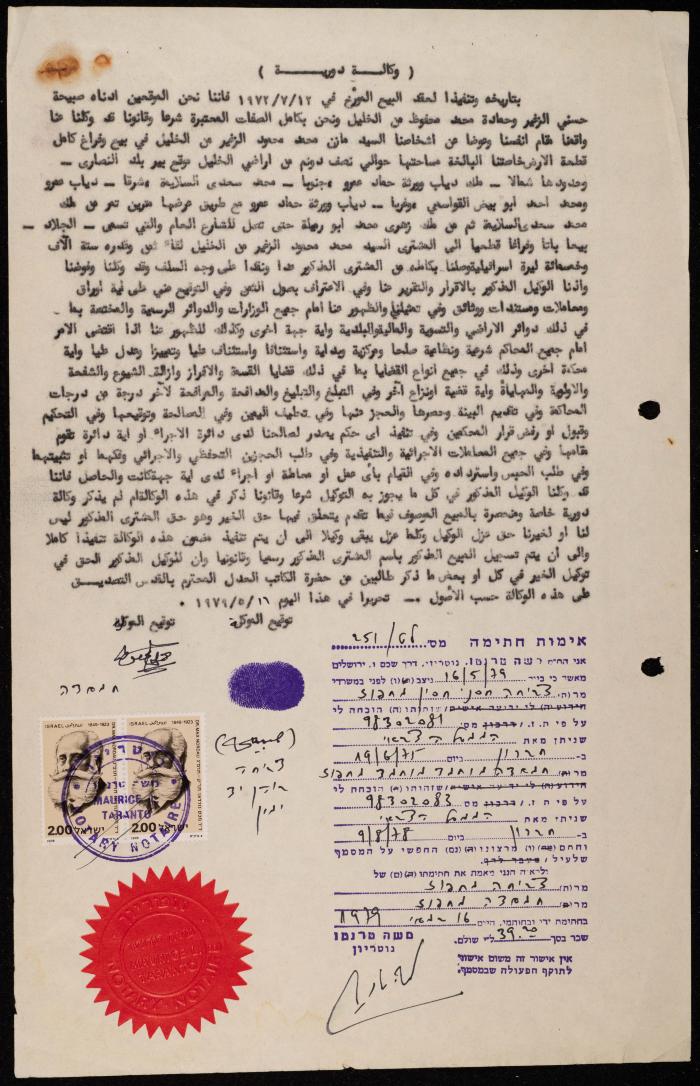 ( وكالــة دوريــــــة )
بتاريخه وتنفيذا لعقد البيع المؤرخ في ١٩٧٢/٧/١٢ فاننا نحن الموقعين ادناه صبيحة
حسني الزغير وحمادة محمد محفوظ من الخليل ونحن بكامل الصفات المعتبرة شرعا وقانونا قد وكلنا عنا
واقمنا مقام انفسنا وعوضا عن اشخاصنا السيد مازن محمد محمود الزغير من الخليل في بيع وفراغ كامل
قطعة الارض خاصتنا البالغة مساحتها حوالي نصف دونم من اراضي الخليل موقع بير بك النصارى ــ
وحدودها شمالا ــ ملك دياب وورثة حماد عمرو وجنوبا ــ محمد سعدى السلايمة وشرقا ــ دياب عمرو
ومحمد احمد ابو بيض القواسمي وغربا ــ دياب وورثة حماد عمرو مع طريق عرضها مترين تمر من ملك
محمد سعدى السلايمة ثم من ملك زهرى محمد ابو رميلة حتى تصل للشارع العام والتي تسمى ــ الجلاد ــ
بيعا باتا وفراغا قطعيا الى المشترى السيد محمد محمود الزغير من الخليل لقاء ثمن وقدره ستة الآف
وخمسمائة ليرة اسرائيلية وصلنا بكامله من المشترى المذكور عدا ونقدا على وجه السلف وقد وكلنا وفوضنا
واذنا الوكيل المذكور بالاقرار والتقرير عنا وفي الاعتراف بصول الثمن وفي التوقيع عني على اية اوراق
ومعاملات ومستندات ووثائق وفي تمثيلنا والظهور عنا امام جميع الوزارات والدوائر الرسمية والمختصة بما
في ذلك دوائر الاراضي والتسوية والمالية والبلدية واية جهة اخرى وكذلك للظهور عنا اذا اقتضى الامر
امام جميع المحاكم شرعية ونظامية صلحا ومركزية وبداية واستئنافا واستئناف عليا وتمييزا وعدل عليا واية
محكمة اخرى وذلك في جميع انواع القضايا بما في ذلك قضايا القسمة والافراز وازالة الشيوع والشفعة
والاولوية والمهاياة واية قضية اونزاع آخر وفي التبلغ والتبليغ والمدافعة والمرافعة لآخر درجة من درجات
المحاكمة وفي تقديم البينة وحصرها والعجز عنها وفي تحليف اليمين وفي المصالحة وتوقيعها وفي التحكيم
وقبول او رفض قرار المحكمين وفي تنفيذ اى حكم يصدر لصالحنا لدى دائرة الاجراء او اية دائرة تقوم
مقامها وفي جميع المعاملات الاجرائية والتنفيذية وفي طلب الحجزين التحفظي والاجرائي وفكهما او تثبيتهما
وفي طلب الحبس واسترداده وفي القيام بأى عمل او معاملة او اجراء لدى اية جهة كانت والحاصل فاننا
قد وكلنا الوكيل المذكور في كل ما يجوز به التوكيل شرعا وقانونا ذكر في هذه الوكالة ام لم يذكر وكالة
دورية خاصة ومنحصرة بالمبيع الموصوف فيما تقدم يتعلق فيها حق الغير وهو حق المشترى المذكور ليس
لنا او لغيرنا حق عزل الوكيل وكلما عزل يبقى وكيلا الى ان يتم تنفيذ مضمون هذه الوكالة تنفيذا كاملا
والى ان يتم تسجيل المبيع المذكور باسم المشترى المذكور رسميا وقانونيا وان للوكيل المذكور الحق في
توكيل الغير في كل او بعض ما ذكر طالبين من حضرة الكاتب العدل المحترم بالقدس التصديــق
على هذه الوكالة حسب الأصول .ــ تحريرا في هذا اليوم ١٩٧٩/٥/١٦ .
توقيع الموكلة توقيع الموكل
אימות חתימה מס' 251/לט
אני הח"מ משה טרנטו, נוטריון, דרך שכם 1, ירושלים
מאשר כי ביום 16/5/79 ניצב (ו) לפני במשרדי
מר/ת צביחה חסני חסין מחפוז
שזהותו/ה הוכחה לי
על פי ת.ז./דרכון מס' 98302081
שניתן מאת הממשל הצבאי
ב- חברון ביום 19/6/75
מר/ת חמאדה מוחמד מוחמד מחפוז
שזהותו/ה הוכחה לי
על פי ת.ז./דרכון מס' 98302083
שניתן מאת הממשל הצבאי
ב- חברון ביום 9/8/78
וחתם (ו) מרצונו/ה (נם) החפשי על המסמך
שלעיל
ולראיה הנני מאמת את חתימתו (ה) (ם) של
מר/ת צביחה מחפוז
מר/ת חמאדה מחפוז
בחתימת ידי ובחותמי, היום 16 במאי 1979
שכר בסך 39.20 ל"י שולם.
משה טרנטו
נוטריון
אין אישור זה משום אישור
לתוקף הפעולה שבמסמך.
חמאדה
צביחה
בוהן יד
ימין
ISRAEL 1849-1923 DR. MAX NORDAU
ISRAEL 1849-1923 DR. MAX NORDAU
2.00 ישראל 2.00 ישראל
נוטריון
משה טרנטו
MAURICE
TARANTO
NOTARY NOTAIRE
נוטריון
משה טרנטו
MAURICE
TARANTO
NOTARY NOTAIRE